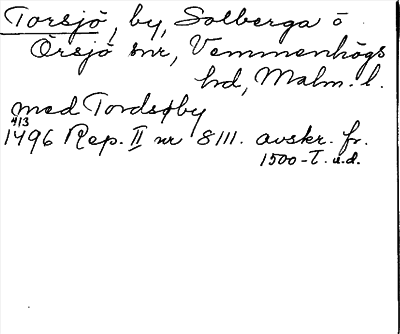 Torsjö, by, Solberga o
Örsjö snr, Vemmenhögs
hd, Malm. l.
med Tordsøby
4/3
1496 Rep. II nr 8111. avskr. fr.
1500-T. u.d.